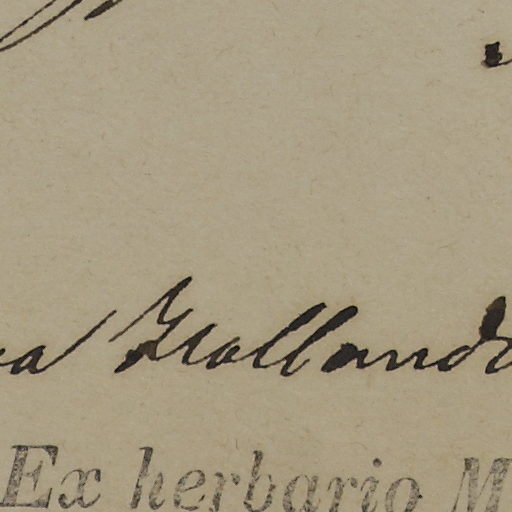 a Holland
Ex herbario M